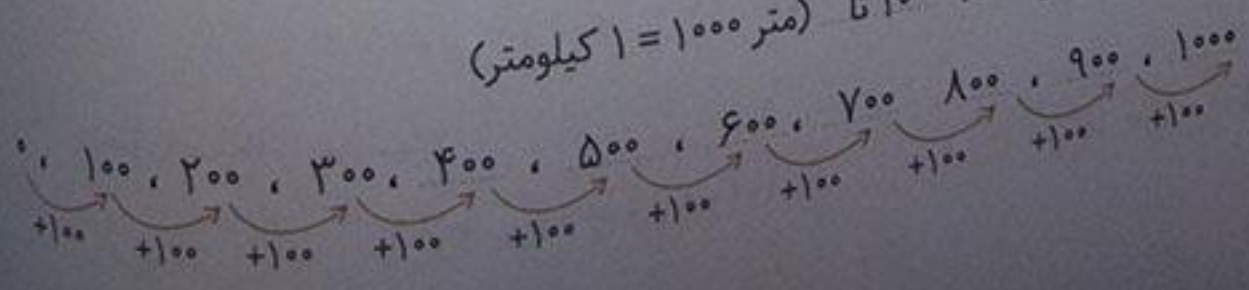 تا (متر ۱۰۰۰ = ۱ کیلومتر)
۰، ۱۰۰، ۲۰۰، ۳۰۰، ۴۰۰، ۵۰۰، ۶۰۰، ۷۰۰ ۸۰۰، ۹۰۰، ۱۰۰۰
+۱۰۰ +۱۰۰ +۱۰۰ +۱۰۰ +۱۰۰ +۱۰۰ +۱۰۰ +۱۰۰ +۱۰۰ +۱۰۰